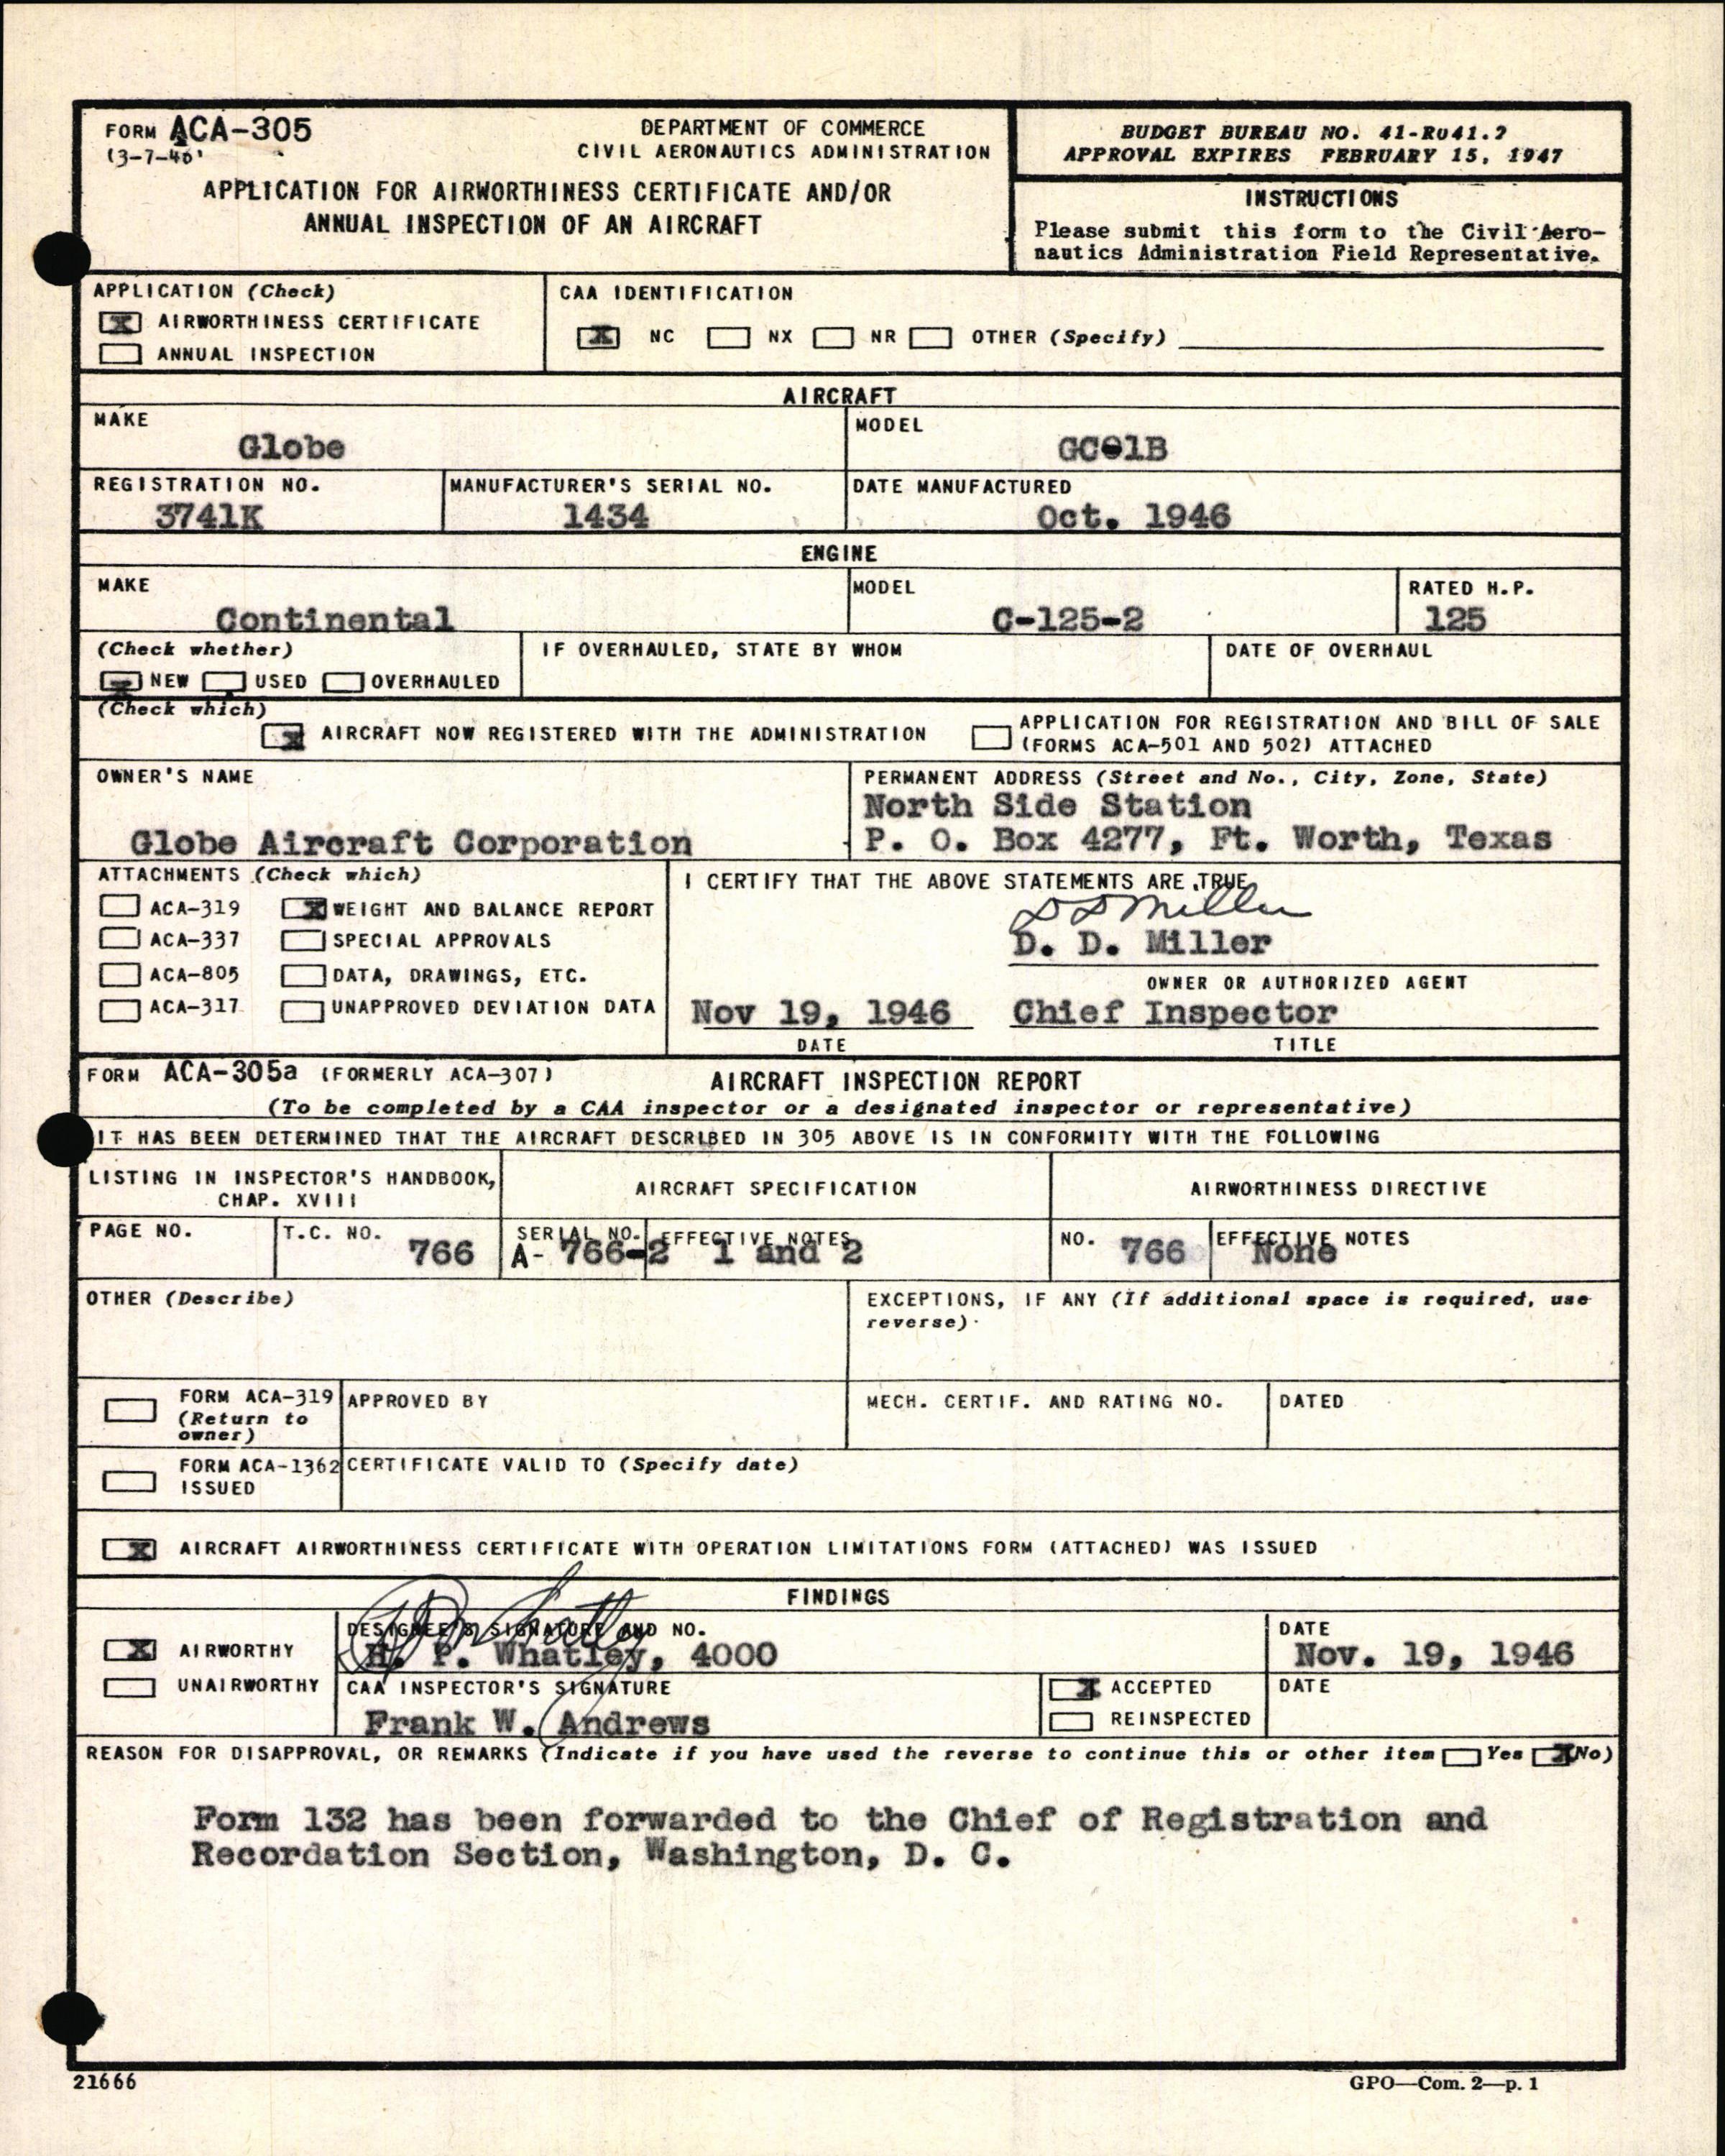 FORM ACA-305
DEPARTMENT OF COMMERCE
CIVIL AERONAUTICS ADMINISTRATION
APPLICATION FOR AIRWORTHINESS CERTIFICATE AND/OR
ANNUAL INSPECTION OF AN AIRCRAFT
BUDGET BUREAU NO. 41-R041.2
APPROVAL EXPIRES FEBRUARY 15, 1947
INSTRUCTIONS
Please submit this form to the Civil Aero-
nautics Administration Field Representative.
APPLICATION (Check)
X AIRWORTHINESS CERTIFICATE
ANNUAL INSPECTION
CAA IDENTIFICATION
X NC NX NR OTHER (Specify)
AIRCRAFT
MAKE
Globe
MODEL
GC-1B
REGISTRATION NO.
3741K
MANUFACTURER'S SERIAL NO.
1434
DATE MANUFACTURED
Oct. 1946
ENGINE
MAKE
Continental
MODEL
C-125-2
RATED H.P.
125
(Check whether)
X NEW USED OVERHAULED
IF OVERHAULED, STATE BY WHOM
DATE OF OVERHAUL
(Check which)
X AIRCRAFT NOW REGISTERED WITH THE ADMINISTRATION
APPLICATION FOR REGISTRATION AND BILL OF SALE
(FORMS ACA-501 AND 502) ATTACHED
OWNER'S NAME
Globe Aircraft Corporation
PERMANENT ADDRESS (Street and No., City, Zone, State)
North Side Station
P. O. Box 4277, Ft. Worth, Texas
ATTACHMENTS (Check which)
ACA-319 X WEIGHT AND BALANCE REPORT
ACA-337 SPECIAL APPROVALS
ACA-805 DATA, DRAWINGS, ETC.
ACA-317 UNAPPROVED DEVIATION DATA
I CERTIFY THAT THE ABOVE STATEMENTS ARE TRUE
D D Miller
D. D. Miller
OWNER OR AUTHORIZED AGENT
Nov 19, 1946 Chief Inspector
DATE TITLE
FORM ACA-305a (FORMERLY ACA-307)
AIRCRAFT INSPECTION REPORT
(To be completed by a CAA inspector or a designated inspector or representative)
IT HAS BEEN DETERMINED THAT THE AIRCRAFT DESCRIBED IN 305 ABOVE IS IN CONFORMITY WITH THE FOLLOWING
LISTING IN INSPECTOR'S HANDBOOK,
CHAP. XVIII
AIRCRAFT SPECIFICATION
AIRWORTHINESS DIRECTIVE
PAGE NO.
T.C. NO.
766
SERIAL NO.
A- 766-2
EFFECTIVE NOTES
1 and 2
NO.
766
EFFECTIVE NOTES
None
OTHER (Describe)
EXCEPTIONS, IF ANY (If additional space is required, use
reverse)
FORM ACA-319
(Return to
owner)
APPROVED BY
MECH. CERTIF. AND RATING NO.
DATED
FORM ACA-1362
ISSUED
CERTIFICATE VALID TO (Specify date)
X AIRCRAFT AIRWORTHINESS CERTIFICATE WITH OPERATION LIMITATIONS FORM (ATTACHED) WAS ISSUED
FINDINGS
X AIRWORTHY
UNAIRWORTHY
DESIGNEE'S SIGNATURE AND NO.
H. P. Whatley, 4000
DATE
Nov. 19, 1946
CAA INSPECTOR'S SIGNATURE
Frank W. Andrews
X ACCEPTED
REINSPECTED
DATE
REASON FOR DISAPPROVAL, OR REMARKS (Indicate if you have used the reverse to continue this or other item Yes X No)
Form 132 has been forwarded to the Chief of Registration and
Recordation Section, Washington, D. C.
21666
GPO—Com. 2—p. 1